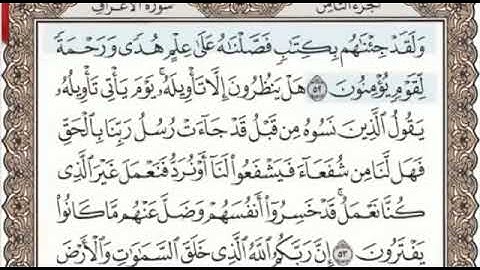 الجزء الثامن سورة الأعراف
وَلَقَدْ جِئْنَٰهُم بِكِتَٰبٍ فَصَّلْنَٰهُ عَلَىٰ عِلْمٍ هُدًى وَرَحْمَةً
لِّقَوْمٍ يُؤْمِنُونَ ٥٢ هَلْ يَنظُرُونَ إِلَّا تَأْوِيلَهُۥ ۚ يَوْمَ يَأْتِى تَأْوِيلُهُۥ
يَقُولُ ٱلَّذِينَ نَسُوهُ مِن قَبْلُ قَدْ جَآءَتْ رُسُلُ رَبِّنَا بِٱلْحَقِّ
فَهَل لَّنَا مِن شُفَعَآءَ فَيَشْفَعُوا۟ لَنَآ أَوْ نُرَدُّ فَنَعْمَلَ غَيْرَ ٱلَّذِى
كُنَّا نَعْمَلُ ۚ قَدْ خَسِرُوٓا۟ أَنفُسَهُمْ وَضَلَّ عَنْهُم مَّا كَانُوا۟
يَفْتَرُونَ ٥٣ إِنَّ رَبَّكُمُ ٱللَّهُ ٱلَّذِى خَلَقَ ٱلسَّمَٰوَٰتِ وَٱلْأَرْضَ